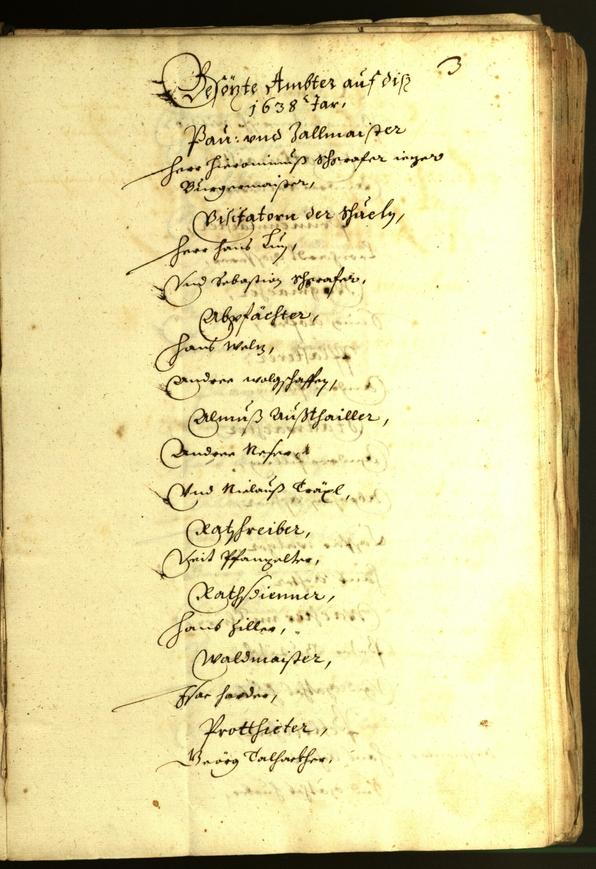 3
Besözte Ämbter auf diß
1638 Jar.
Pau: und Zallmaister
Herr Hieronimuß Schrafer iezger
Burgermaister,
Visitatorn der
Herr Hanß
Und Sebastian Schrafer,
Abpfächter,
Hanß Weltz,
Andree
Almuß Außthailler,
Andree
Und Niclauß Träxl,
Rathschreiber,
Veit
Rathsdienner,
Hanß Hiller,
Waldmaister,
Isac Harder,
Protthieter,
Geörg